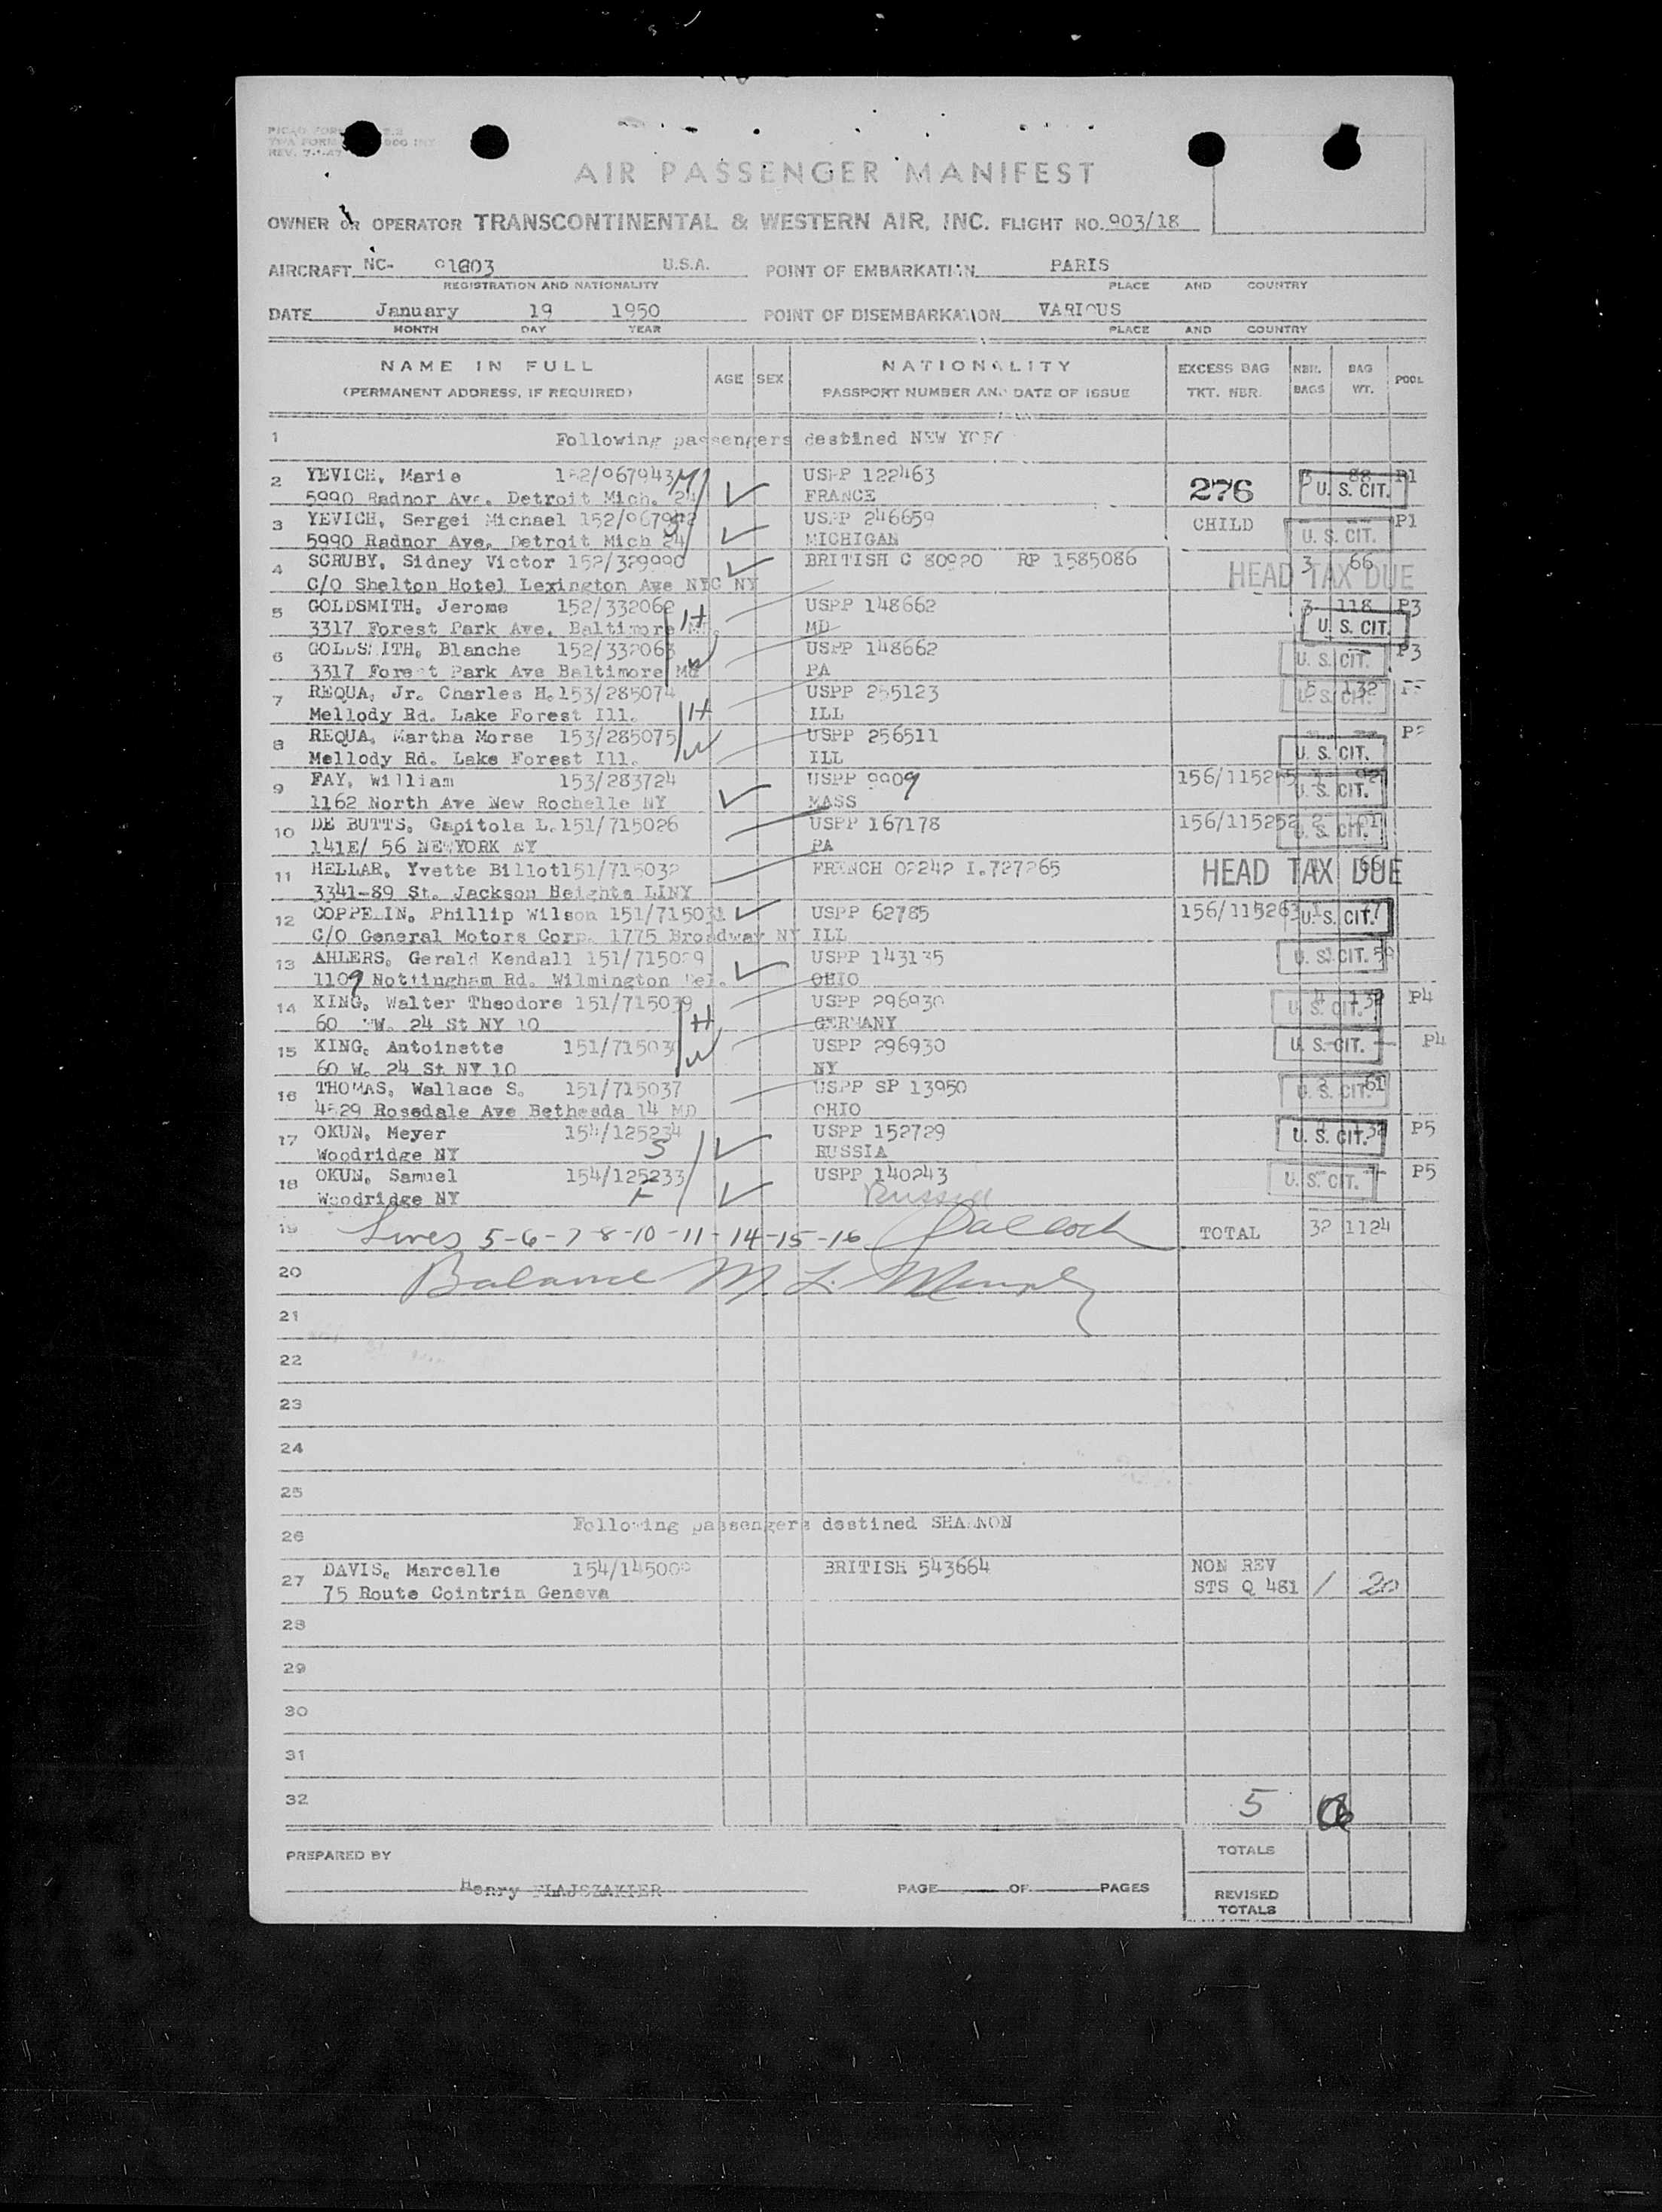 REV. 7-1-47
AIR PASSENGER MANIFEST
OWNER OR OPERATOR TRANSCONTINENTAL & WESTERN AIR, INC. FLIGHT NO. 903/18
AIRCRAFT NC- U.S.A. POINT OF EMBARKATION PARIS
REGISTRATION AND NATIONALITY PLACE AND COUNTRY
DATE January 19 1950 POINT OF DISEMBARKATION VARIOUS
MONTH DAY YEAR PLACE AND COUNTRY
NAME IN FULL AGE SEX NATIONALITY EXCESS BAG NBR. BAG POOL
(PERMANENT ADDRESS, IF REQUIRED) PASSPORT NUMBER AND DATE OF ISSUE TKT. NBR. BAGS WT.
1 Following passengers destined NEW YORK
2 YEVICH, Marie 152/067943 M USPP 122463 276 3 88 P1
5990 Radnor Ave. Detroit Mich. 24 FRANCE U. S. CIT.
3 YEVICH, Sergei Michael USPP 246659 CHILD P1
5990 Radnor Ave, Detroit Mich 24 S MICHIGAN U. S. CIT.
4 SCRUBY, Sidney Victor 152/329990 BRITISH C 80920 RP 1585086 3 66
C/O Shelton Hotel Lexington Ave NYC NY HEAD TAX DUE
5 GOLDSMITH, Jerome 152/332062 H USPP 148662 3 118 P3
3317 Forest Park Ave. Baltimore MD U. S. CIT.
6 GOLDSMITH, Blanche 152/332063 W USPP 148662 P3
3317 Forest Park Ave Baltimore Md PA U. S. CIT.
7 REQUA, Jr. Charles H. 153/285074 USPP 255123 5 132
Mellody Rd. Lake Forest Ill. H ILL U. S. CIT.
8 REQUA, Martha Morse 153/285075 W USPP 256511 P2
Mellody Rd. Lake Forest Ill. ILL U. S. CIT.
9 FAY, William 153/283724 USPP 9909
1162 North Ave New Rochelle NY MASS U. S. CIT.
10 DE BUTTS, Capitola L. 151/715026 USPP 167178 156/115252 2 101
141E/ 56 NEWYORK NY PA U. S. CIT.
11 HELLAR, Yvette Billot 151/715032 FRENCH 02242 I.727265 HEAD TAX DUE
3341-89 St. Jackson Heights LINY
12 Phillip Wilson 151/715031 USPP 62785 156/115263 U. S. CIT.
C/O General Motors Corp. 1775 Broadway NY ILL
13 AHLERS, Gerald Kendall 151/715029 USPP 143135 U. S. CIT. 59
1109 Nottingham Rd. Wilmington Del. OHIO
14 KING, Walter Theodore 151/715039 USPP 296930 4 132 P4
60 W. 24 St NY 10 H GERMANY U. S. CIT.
15 KING, Antoinette W USPP 296930 U. S. CIT. P4
60 W. 24 St NY 10 NY
16 THOMAS, Wallace S. 151/715037 USPP SP 13950 61
Rosedale Ave Bethesda 14 MD OHIO U. S. CIT.
17 OKUN, Meyer 154/125234 USPP 152729 132 P5
Woodridge NY S RUSSIA U. S. CIT.
18 OKUN, Samuel 154/125233 USPP 140243 U. S. CIT. P5
Woodridge NY F Russia
19 Lines 5-6-7-8-10-11-14-15-16 TOTAL 32 1124
20 Balance M. L. Murphy
21
22
23
24
25
26 Following passengers destined SHANNON
27 DAVIS, Marcelle BRITISH 543664 NON REV
75 Route Cointrin Geneva STS Q 481 1 20
28
29
30
31
32 5
PREPARED BY TOTALS
Henry FLAJSZAKIER PAGE OF PAGES REVISED
TOTALS